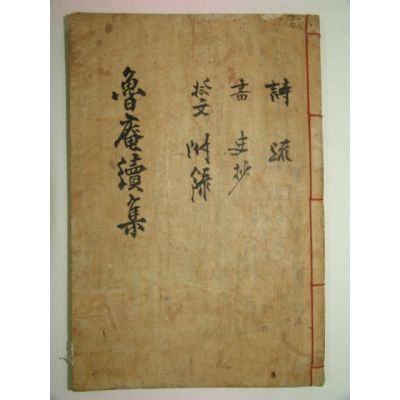 詩 疏
書 史抄
祭文 附錄
魯庵續集